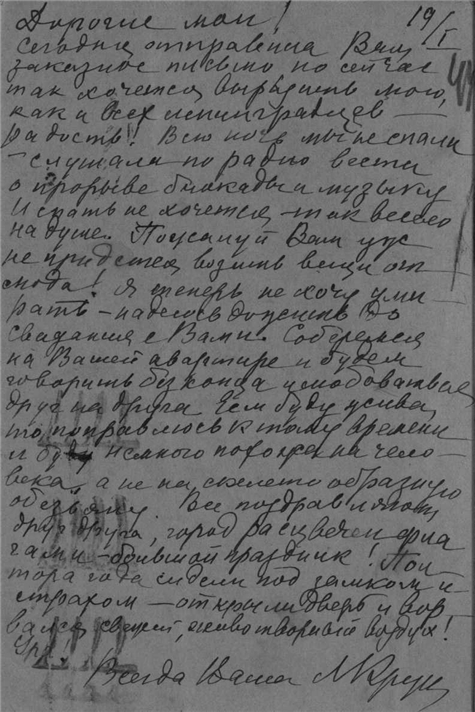 Дорогие мои! 19/I
Сегодня отправила Вам
заказное письмо но сейчас
так хочется выразить мою,
как и всех ленинградцев —
радость! Всю ночь мы не спали
— слушали по радио вести
о прорыве блокады и музыку
И спать не хочется — так весело
на душе. Пожалуй Вам уж
не придется возить вещи от
сюда! Я теперь не хочу уми-
рать — надеюсь дожить до
свидания с Вами. Соберемся
на Вашей квартире и будем
говорить без конца и любоваться
друг на друга Если буду жива,
то поправлюсь к тому времени
и буду немного похожа на чело-
века, а не на скелето образную
обезьяну. Все поздравляют
друг друга, город расцвечен фла
гами — большой праздник! Пол
тора года сидели под замком и
страхом — открыли дверь и вор
вался свежий, животворный воздух!
Ура!
Всегда Ваша